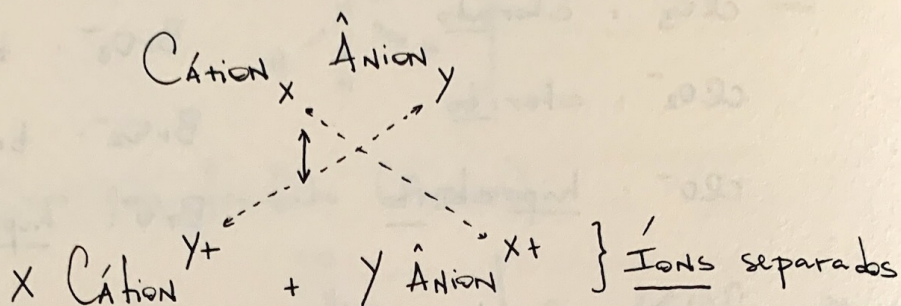 Cátion x Ânion y
x Cátion y+ + y Ânion x+ } Íons separados